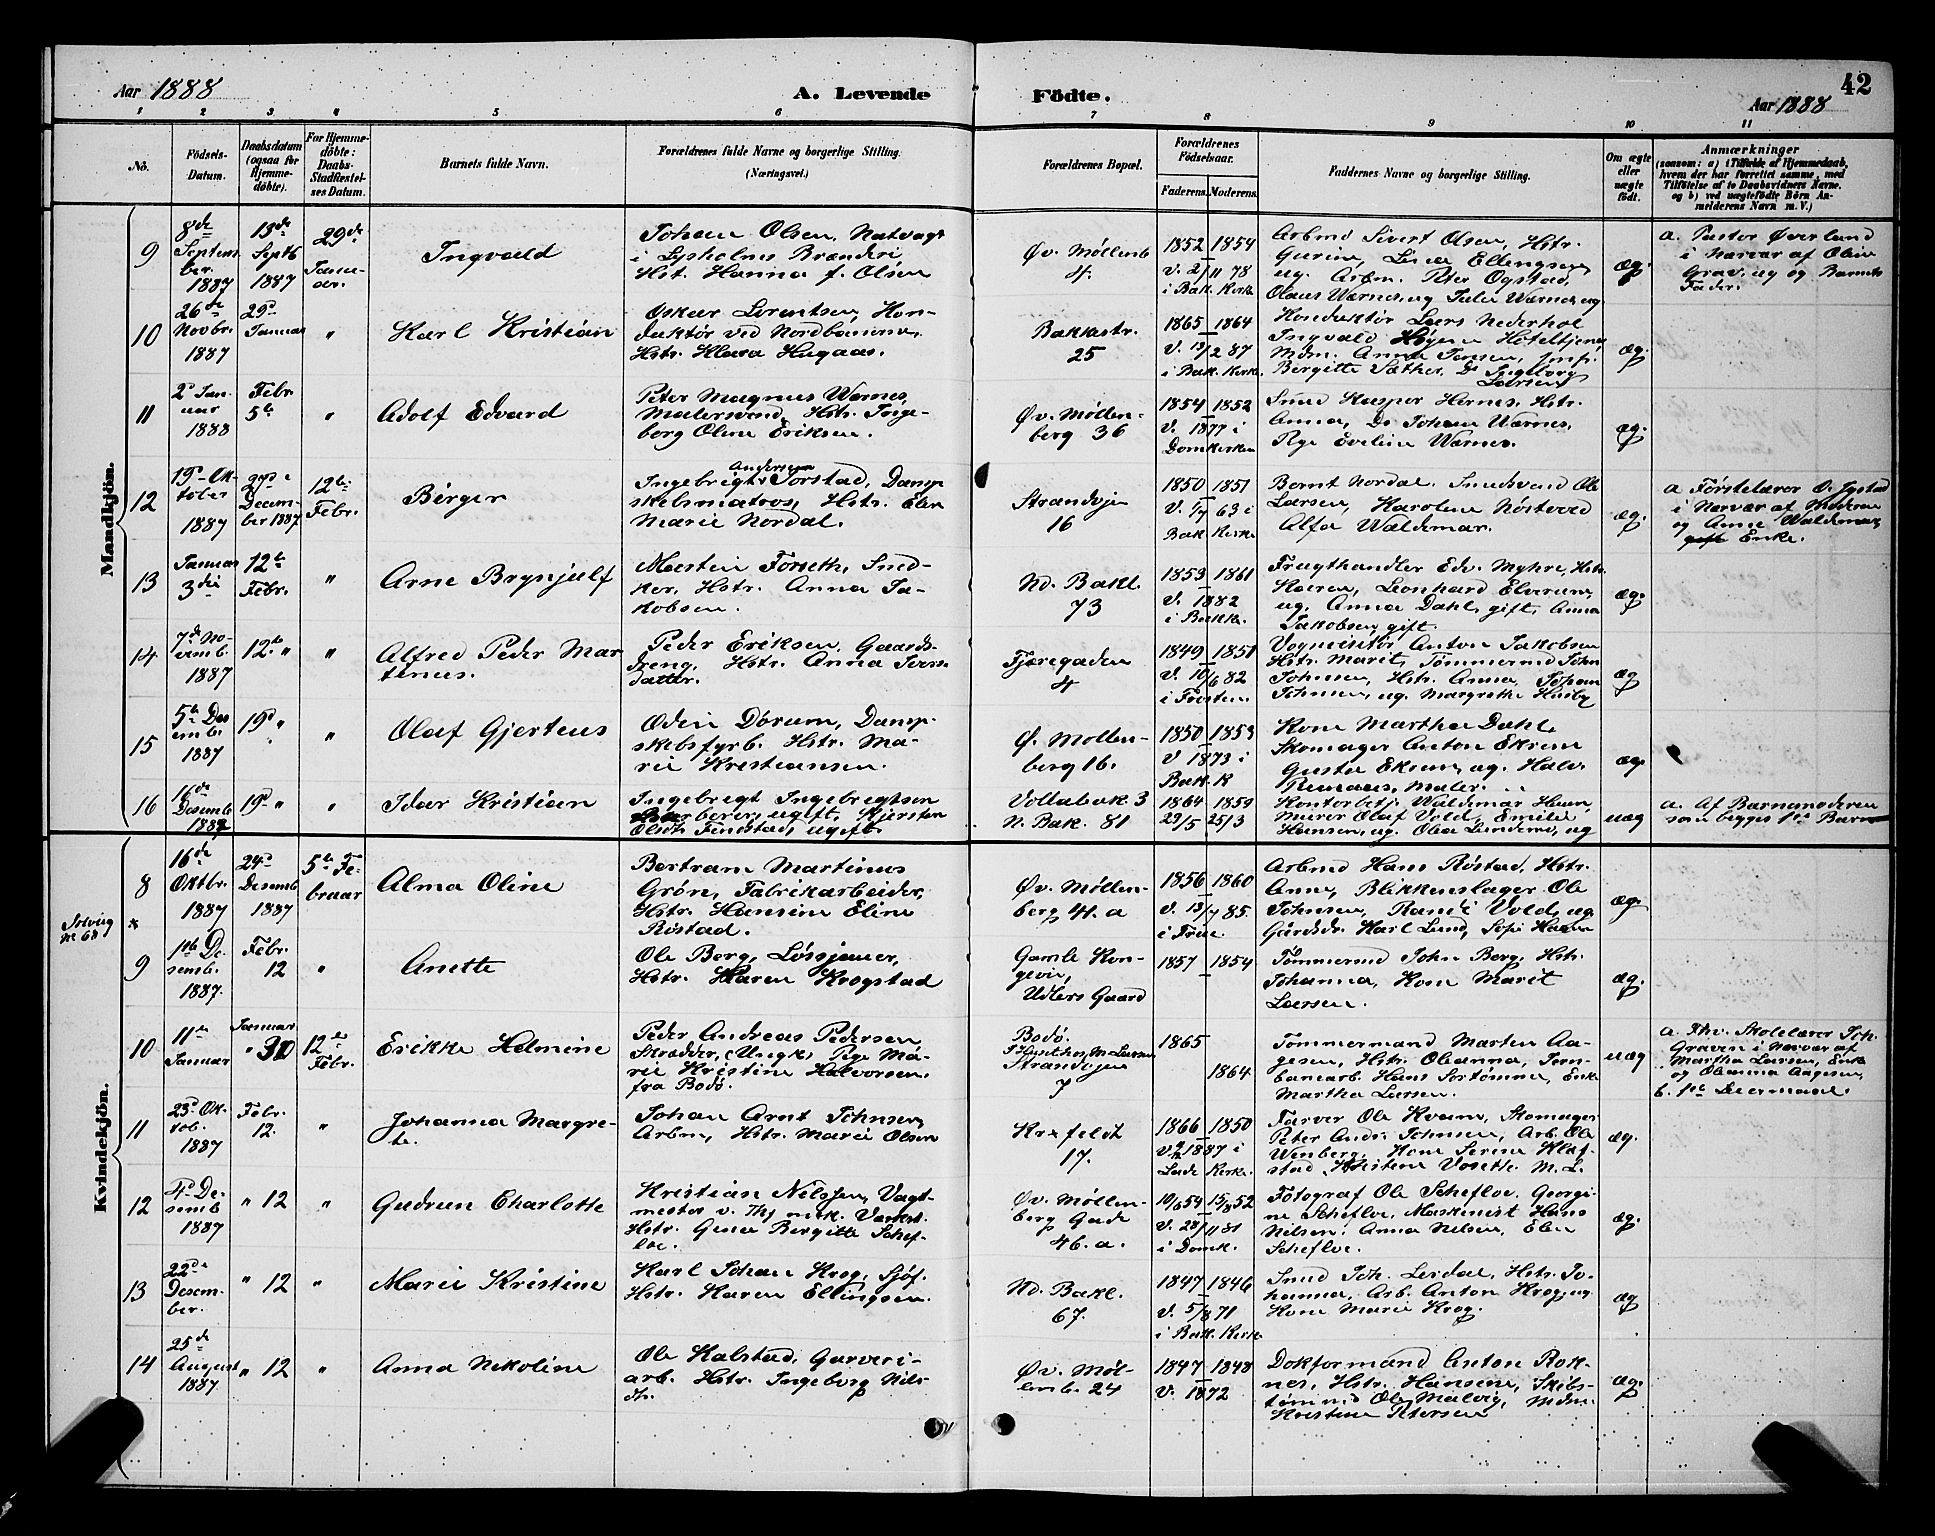 Aar 1888
A. Levende Födte.
42
Aar 1888
1 2 3 4 5 6 7 8 9 10 11
No.
Födsels-
Datum.
Daabsdatum
(ogsaa for
Hjemme-
döbte).
For Hjemme-
döbte:
Daabs-
Stadfæstel-
ses Datum.
Barnets fulde Navn.
Forældrenes fulde Navne og borgerlige Stilling.
(Næringsvei.)
Forældrenes Bopæl.
Forældrenes
Födselsaar.
Faderens. Moderens.
Faddernes Navne og borgerlige Stilling.
Om ægte
eller
uægte
födt.
Anmærkninger
(saasom: a) i Tilfælde af Hjemmedaab,
hvem der har forrettet samme, med
Tilföielse af to Daabsvidners Navne.
og b) ved uægtefödte Börn An-
melderens Navn m. V.)
Mandkjön.
9
8de
Septem
ber
1887
13de
Septb
1887
29de
Janu-
ar.
Ingvald
Johan Olsen, Natvagt
i Lysholms Brænderi,
Hst. Hanna f. Olsen
Øv. Møllenb
4.
1852 1854
V. 2/11 78
i Bak. Kirke
Arbmd Sivert Olsen, Hstr.
Gurine, Lina Ellengsen,
ug. Arbm. Peter Ogstad,
Olaus Warnes, ug Julie Warnes, ug
æg:
a. Pastor Øverland
i Nærvær af Oline
Grav, ug og Barnets
Fader.
10
26de
Novbr.
1887
29de
Januar
"
Karl Kristian
Oskar Lorentsen, Kon-
duktør ved Nordbanerne,
Hstr. Klara Hugaas.
Bakkestr.
25
1865 1864
V. 13/2 87
i Bak. Kirke.
Konduktør Lars Nederhol
Ingvald Høyem Hoteltjener
Mdm. Anna Jensen, Jomf.
Bergitte Sæther, Do Ingeborg
Larsen
æg.
11
2de Jan-
uar
1888
Febr.
5te
"
Adolf Edvard
Peter Magnus Warnes,
Malersvend, Hstr. Inge-
borg Oline Eriksen.
Øv. Møllen-
berg 36
1854 1852
V. 1877 i
Domkirken
Smed Kasper Hernes, Hstr.
Anna, Do Johan Warnes,
Pige Eveline Warnes.
æg.
12
19de Ok-
tober
1887
27de
Decem-
ber 1887
12te
Febr.
Birger
Andersen
Ingebrigt Torstad, Damp
skibsmatros, Hstr. Elen
Marie Nordal.
Strandvejen
16
1850 1851
63 i
Bak. Kirke
Bernt Nordal. Smedsvend Ole
Larsen, Karoline Nöstvold
Alfa Waldemar.
æg.
a Førstelærer O. Jystad
i Nærvær af Moderen
og Anne Waldemar,
gift Enke.
13
Januar
3die
12te
Febr.
"
Arne Brynjulf
Martin Forseth, Sned-
ker, Hstr. Anna Ja-
kobsen.
Nd. Bakl.
73
1853 1861
V. 1882
i Bakk.
Frugthandler Edv. Myhre, Hstr.
Karen, Leonhard Elverum,
ug, Anna Dahl, gift, Anna
Jakobsen, gift.
æg.
14
7de No-
vemb.
1887
12te "
"
Alfred Peder Mar
tinus.
Peder Eriksen, Gaards-
dreng, Hstr. Anna Ivers
datter.
Fjæregaden
4
1849 1851
V. 10/6 82
i Frosten.
Anton Jakobsen
Hstr. Marit, Tömmermd John
Johnsen, Hstr. Anna, Johan
Johnsen, ug. Margrethe Husby
æg
15
5te Des
emb.
1887
19de "
"
Olaf Gjerteus
Odin Dörum, Damp-
skibsfyrb. Hstr. Ma-
rie Kristiansen.
Ø. Mollen-
berg 16.
1850 1853
V 1873 i
Bak. K
Kone Martha Dahl
Skomager Anton Ekren
Gusta Ekren, ug. Halv.
Maler.
æg.
16
16de
Desemb
1887
19de "
"
Idar Kristian
Ingebrigt Ingebregtsen
ugift, Kjersten
Olsdtr Fenstad, ugift.
Vollabak. 3
N. Bak. 81
1864 1859
29/5 25/3
Kontorbetj. Waldemar Haan
Murer Olaf Vold, Emilie
Hansen, ug. Olea Lundemo, ug
uæg
a. Af Barnemoderen
som begges 1ste Barn
Kvindekjön.
8
*
No 68
16de
Oktbr.
1887
24de
Desemb
1887
5te Fe-
bruar
Alma Oline
Bertram Martinus
Grön, Fabrikarbeider,
Hstr. Hansine Eline
Röstad.
Øv. Møllen-
berg 4. a
1856 1860
V. 13/7 85.
i Trve.
Arbmd Hans Röstad, Hstr.
Anne, Blikkenslager Ole
Johnsen, Randi Vold, ug.
Gårdsdr. Karl Lund, Sofi Haan
æg.
9
1ste De-
semb.
1887.
Febr.
12
"
Anette
Ole Berg, Løssjauer,
Hstr. Karen Krogstad
Gamle Kon-
gevei,
Udlers Gaard
1857 1854
Tömmermd John Berg, Hstr.
Johanna, Kone Marit
Larsen.
æg.
10
11te
Januar
Januar
" 30
12te
Febr.
Erikke Helmine
Peder Andreas Pedersen
Skrædder, (Ungk) Pige Ma-
rie Kristine Halvorsen,
fra Bodö.
Bodö.
M. Larsen
Strandvejen
7
1865
1864
Tommermand Marten Aa-
gesen, Hstr. Oleanna, Jern-
banearb. Hans Sortömme, Enke
Martha Larsen.
uæg
a. Fhv. Skolelærer Joh.
Graven i Nærvær af
Martha Larsen, Enke
og Oleanna Aagesen,
b. 1ste Leiermaal.
11
23de Ok-
tob.
1887
Febr.
12.
"
Johanna Margre-
te.
Johan Arnt Johnsen,
Arbm, Hstr. Marie Olsen
Kr. feldt
17.
1866 1850
1887 i
Lade Kirke.
Farver Ole Kvam, Skomager
Peter Andr. Johnsen, Arb. Ole
Wenberg, Kone Serine Klef-
stad, Kristine Vosette. M. L.
æg.
12
4de De-
semb
1887
" 12
"
Gudrun Charlotte
Kristian Nilssen, Vagt-
mester v. Thj mek. Værkst.
Hstr. Gina Bergitte Schef-
loe.
Øv. Møllen-
berg Gade
46. a.
10/6 54 15/8 52
V. 28/11 81
i Domk.
Fotograf Ole Schefloe, Georgi-
ne Schefloe, Maskinist Hans
Nilsen, Anna Nilsen, Elen
Schefloe.
æg.
13
22de
Desem-
ber.
" 12
"
Marie Kristine
Karl Johan Krog, Sjöf.
Hstr. Karen Ellingsen.
Nd. Bakl.
67.
1847 1846
V. 5/8 71
i Bak. Kirke
Smed Joh. Lerdal, Hstr. Jo-
hanna, Arb. Anton Krog, ug.
Kone Marie Krog.
æg
14
25de
August
1887
" 12
"
Anna Nikoline
Ole Halstad, Garveri-
arb. Hstr. Ingeborg Nils-
dtr.
Øv. Møl-
lenb. 24
1847 1848
V. 1872
Dokformand Anton Rok-
nes, Hstr. Hansine, Skibs-
tömmd Ole Malvig, Mdm.
Kristine Petersen
æg.